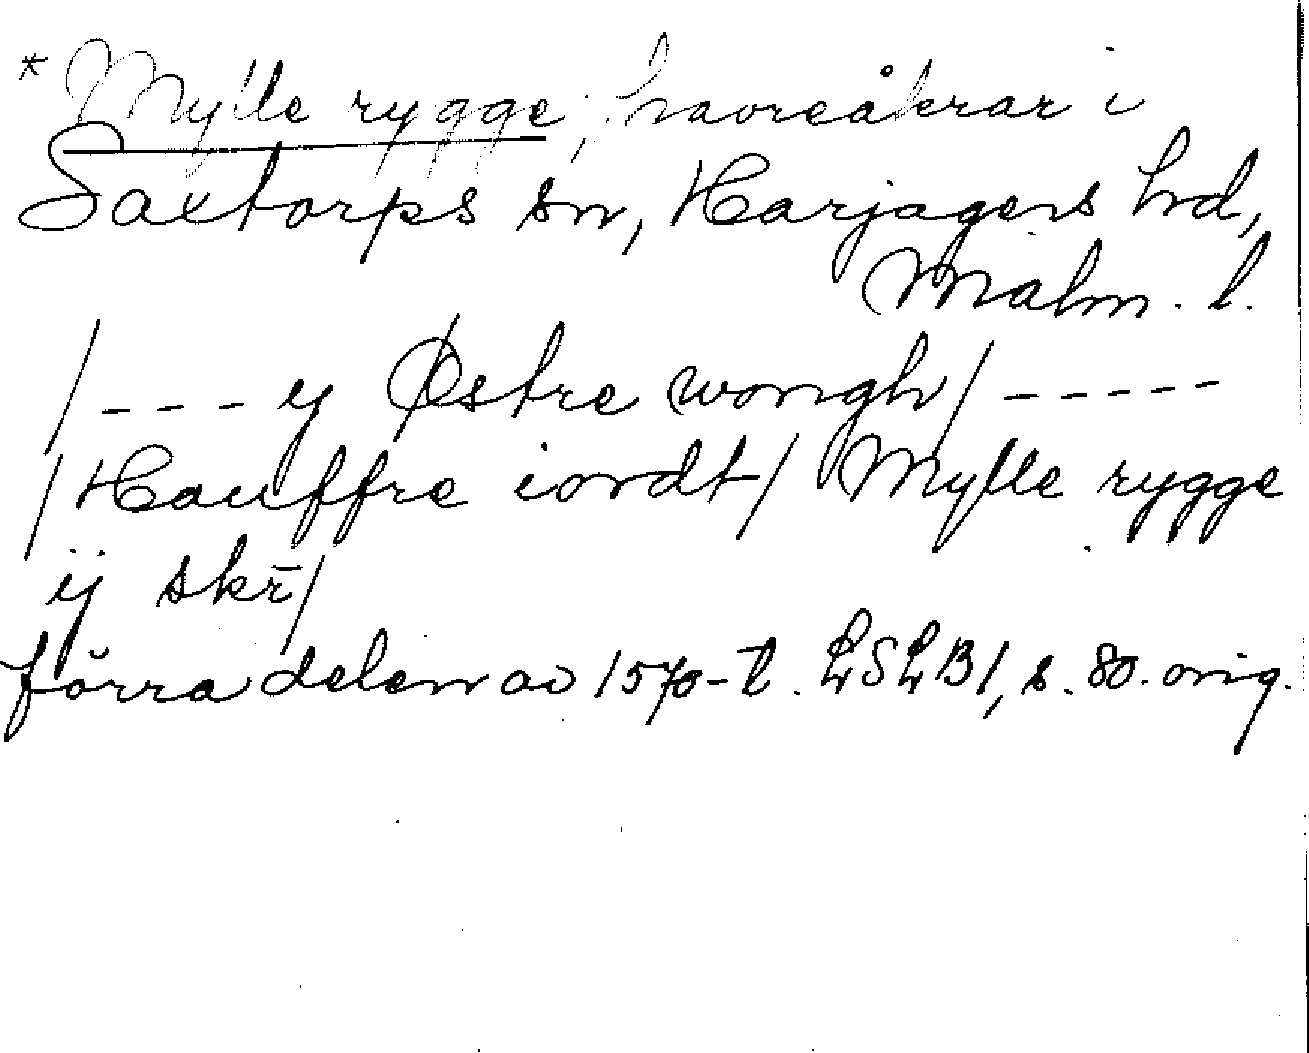 * Mylle rygge, havreåkrar i
Saxtorps sn, Harjagers hd,
Malm. l.
/---ij Østre wongh/-----
/Hauffre iordt/ Mylle rygge
ij skr̄/
förra delen av 1570-t. LSLB1, s. 80. orig.